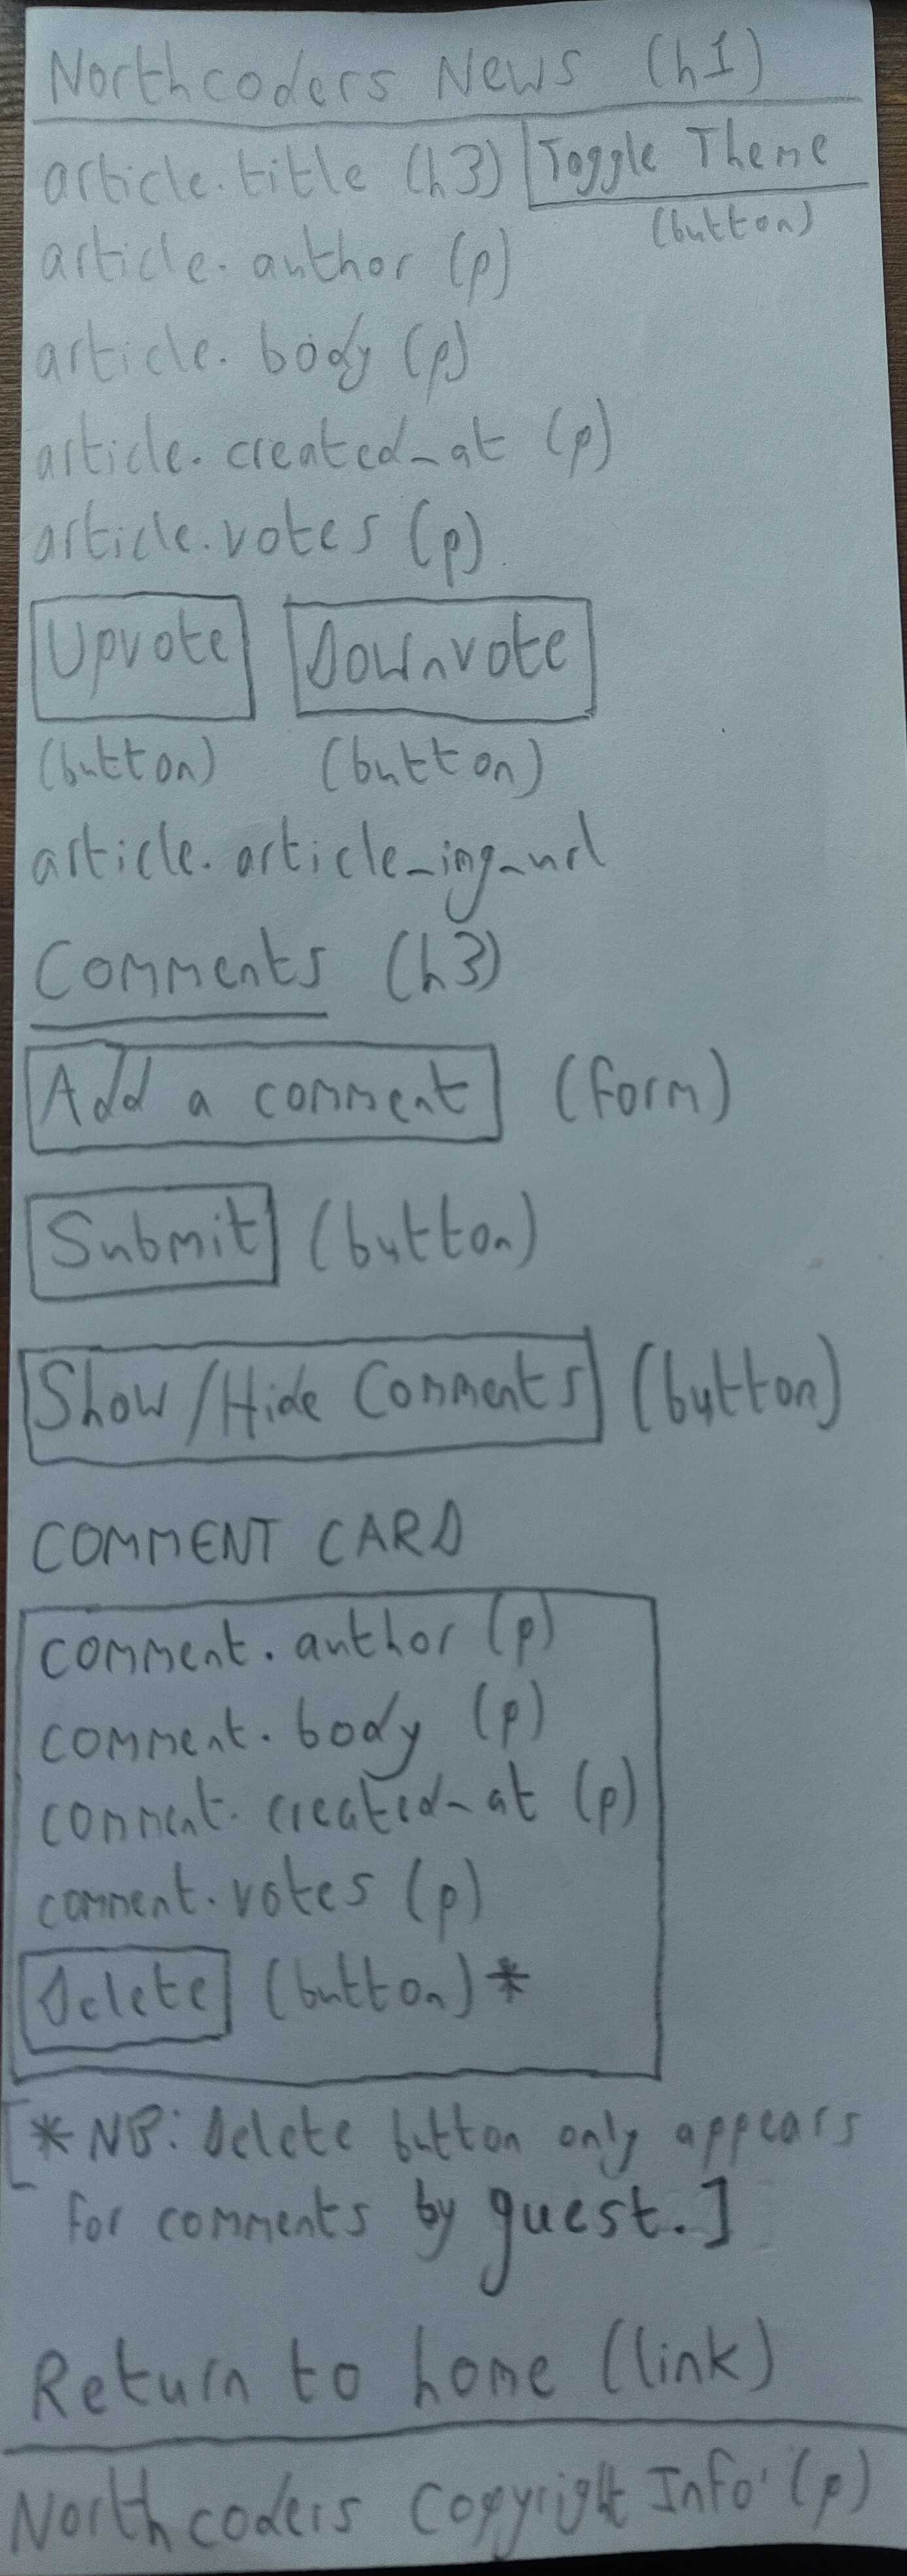 Northcoders News (h1)
article.title (h3) Toggle Theme
(button)
article.author (p)
article.body (p)
article.created_at (p)
article.votes (p)
Upvote Downvote
(button) (button)
article.article_img_url
Comments (h3)
Add a comment (form)
Submit (button)
Show/Hide Comments (button)
COMMENT CARD
comment.author (p)
comment.body (p)
comment.created_at (p)
comment.votes (p)
Delete (button)*
[*NB: Delete button only appears
for comments by guest.]
Return to home (link)
Northcoders Copyright Info (p)